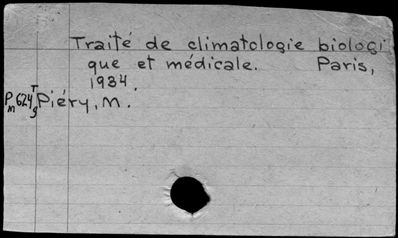 Traité de climatologie biologi
que et médicale. Paris,
1934.
Piéry, M.